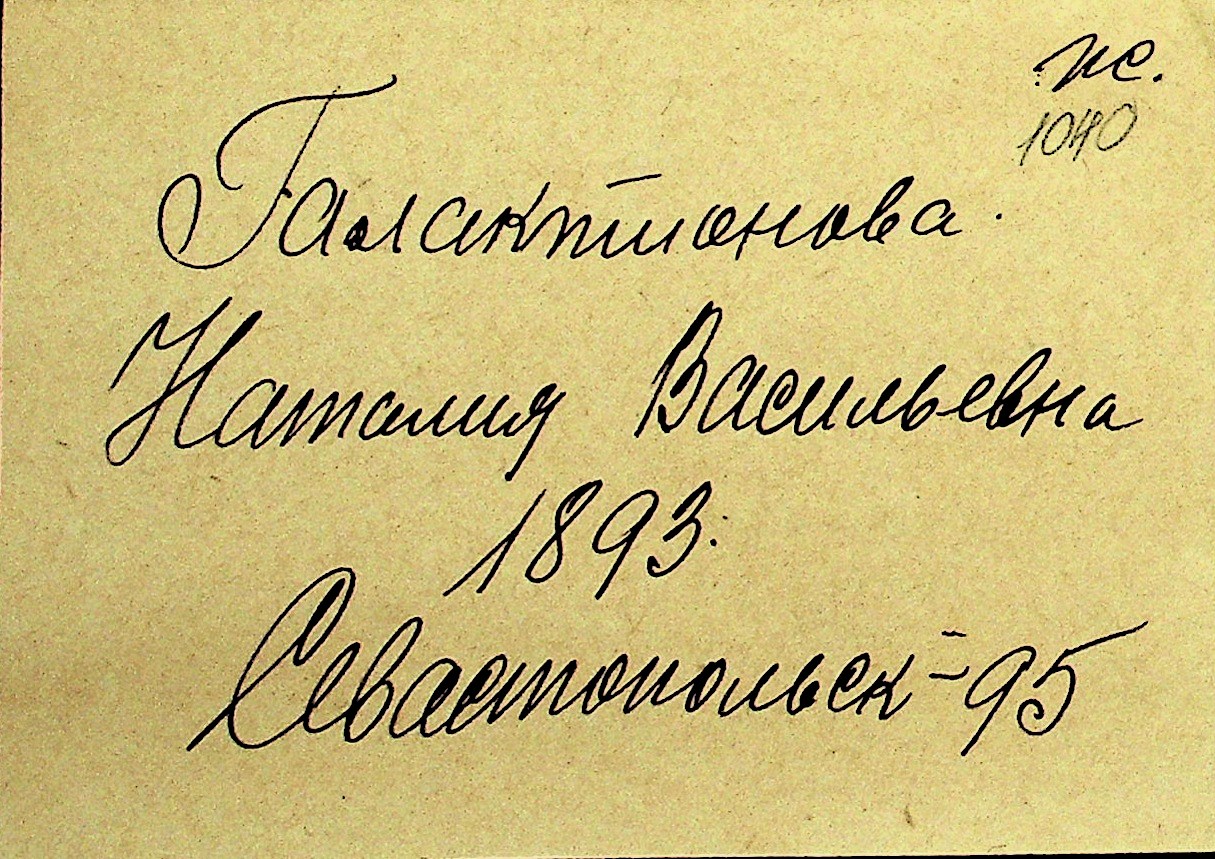 пс.
1040
Галактионова.
Наталия Васильевна
1893.
Севастопольск-95